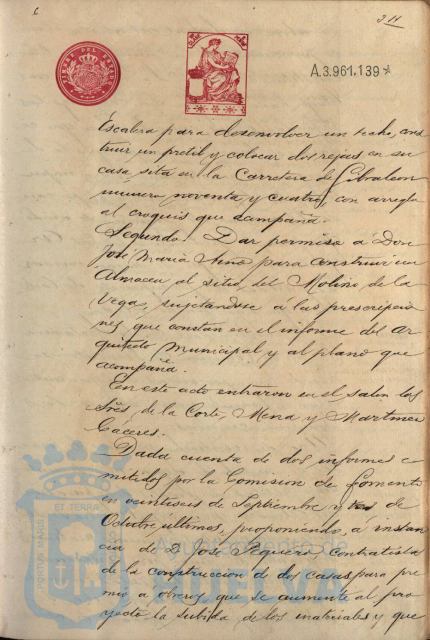 6
311
TIMBRE DEL ESTADO
A.3.961,139
Escalera para desenvolver un techo, cons
truir un pretil y colocar dos rejas en su
casa sita en la Carretera de Gibraleon
número noventa y cuatro, con arreglo
al croquis que acompaña.
Segundo. Dar permiso á Don
José María Nine para construir un
Almacen al sitio del Molino de la
Vega, sujetandose á las prescripcio
nes que consten en el informe del Ar
quitecto Municipal y al plano que
acompaña.
En este acto entraron en el salon los
Sres. de la Corte, Mena y Martinez
Caceres.
Dada cuenta de dos informes e
mitidos por la Comision de fomento
en veintiseis de Septiembre y tres de
Octubre últimos, proponiendo, á instan
cia de D. José Seguera contratista
de la construccion de dos casas para pre
mio a obreros, que se aumente al pro
yecto, la subida de los materiales y que
PORTUS MARIS ET TERRÆ
Ayuntamiento de
HUELVA